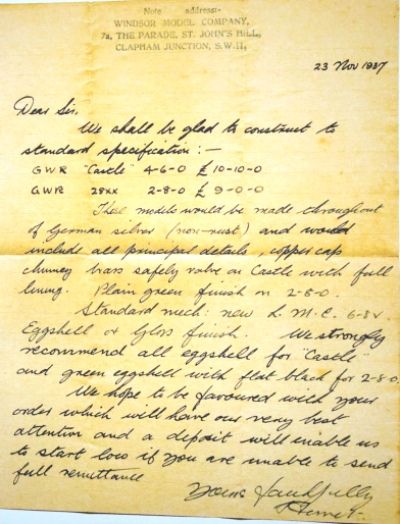 Note address:-
WINDSOR MODEL COMPANY,
7a, THE PARADE, ST. JOHN'S HILL,
CLAPHAM JUNCTION, S.W.11,
23 Nov 1937
Dear Sir,
We shall be glad to construct to
standard specification :—
GWR "Castle" 4-6-0 £10-10-0
GWR 28XX 2-8-0 £9-0-0
These models would be made throughout
of German silver (non-rust) and would
include all principal details, copper cap
chimney brass safety valve on Castle with full
lining. Plain green finish on 2-8-0.
Standard mech: new L.M.C. 6-8v.
Eggshell or Gloss finish. We strongly
recommend all eggshell for "Castle"
and green eggshell with flat black for 2-8-0.
We hope to be favoured with your
order which will have our very best
attention and a deposit will enable us
to start loco if you are unable to send
full remittance
Yours faithfully